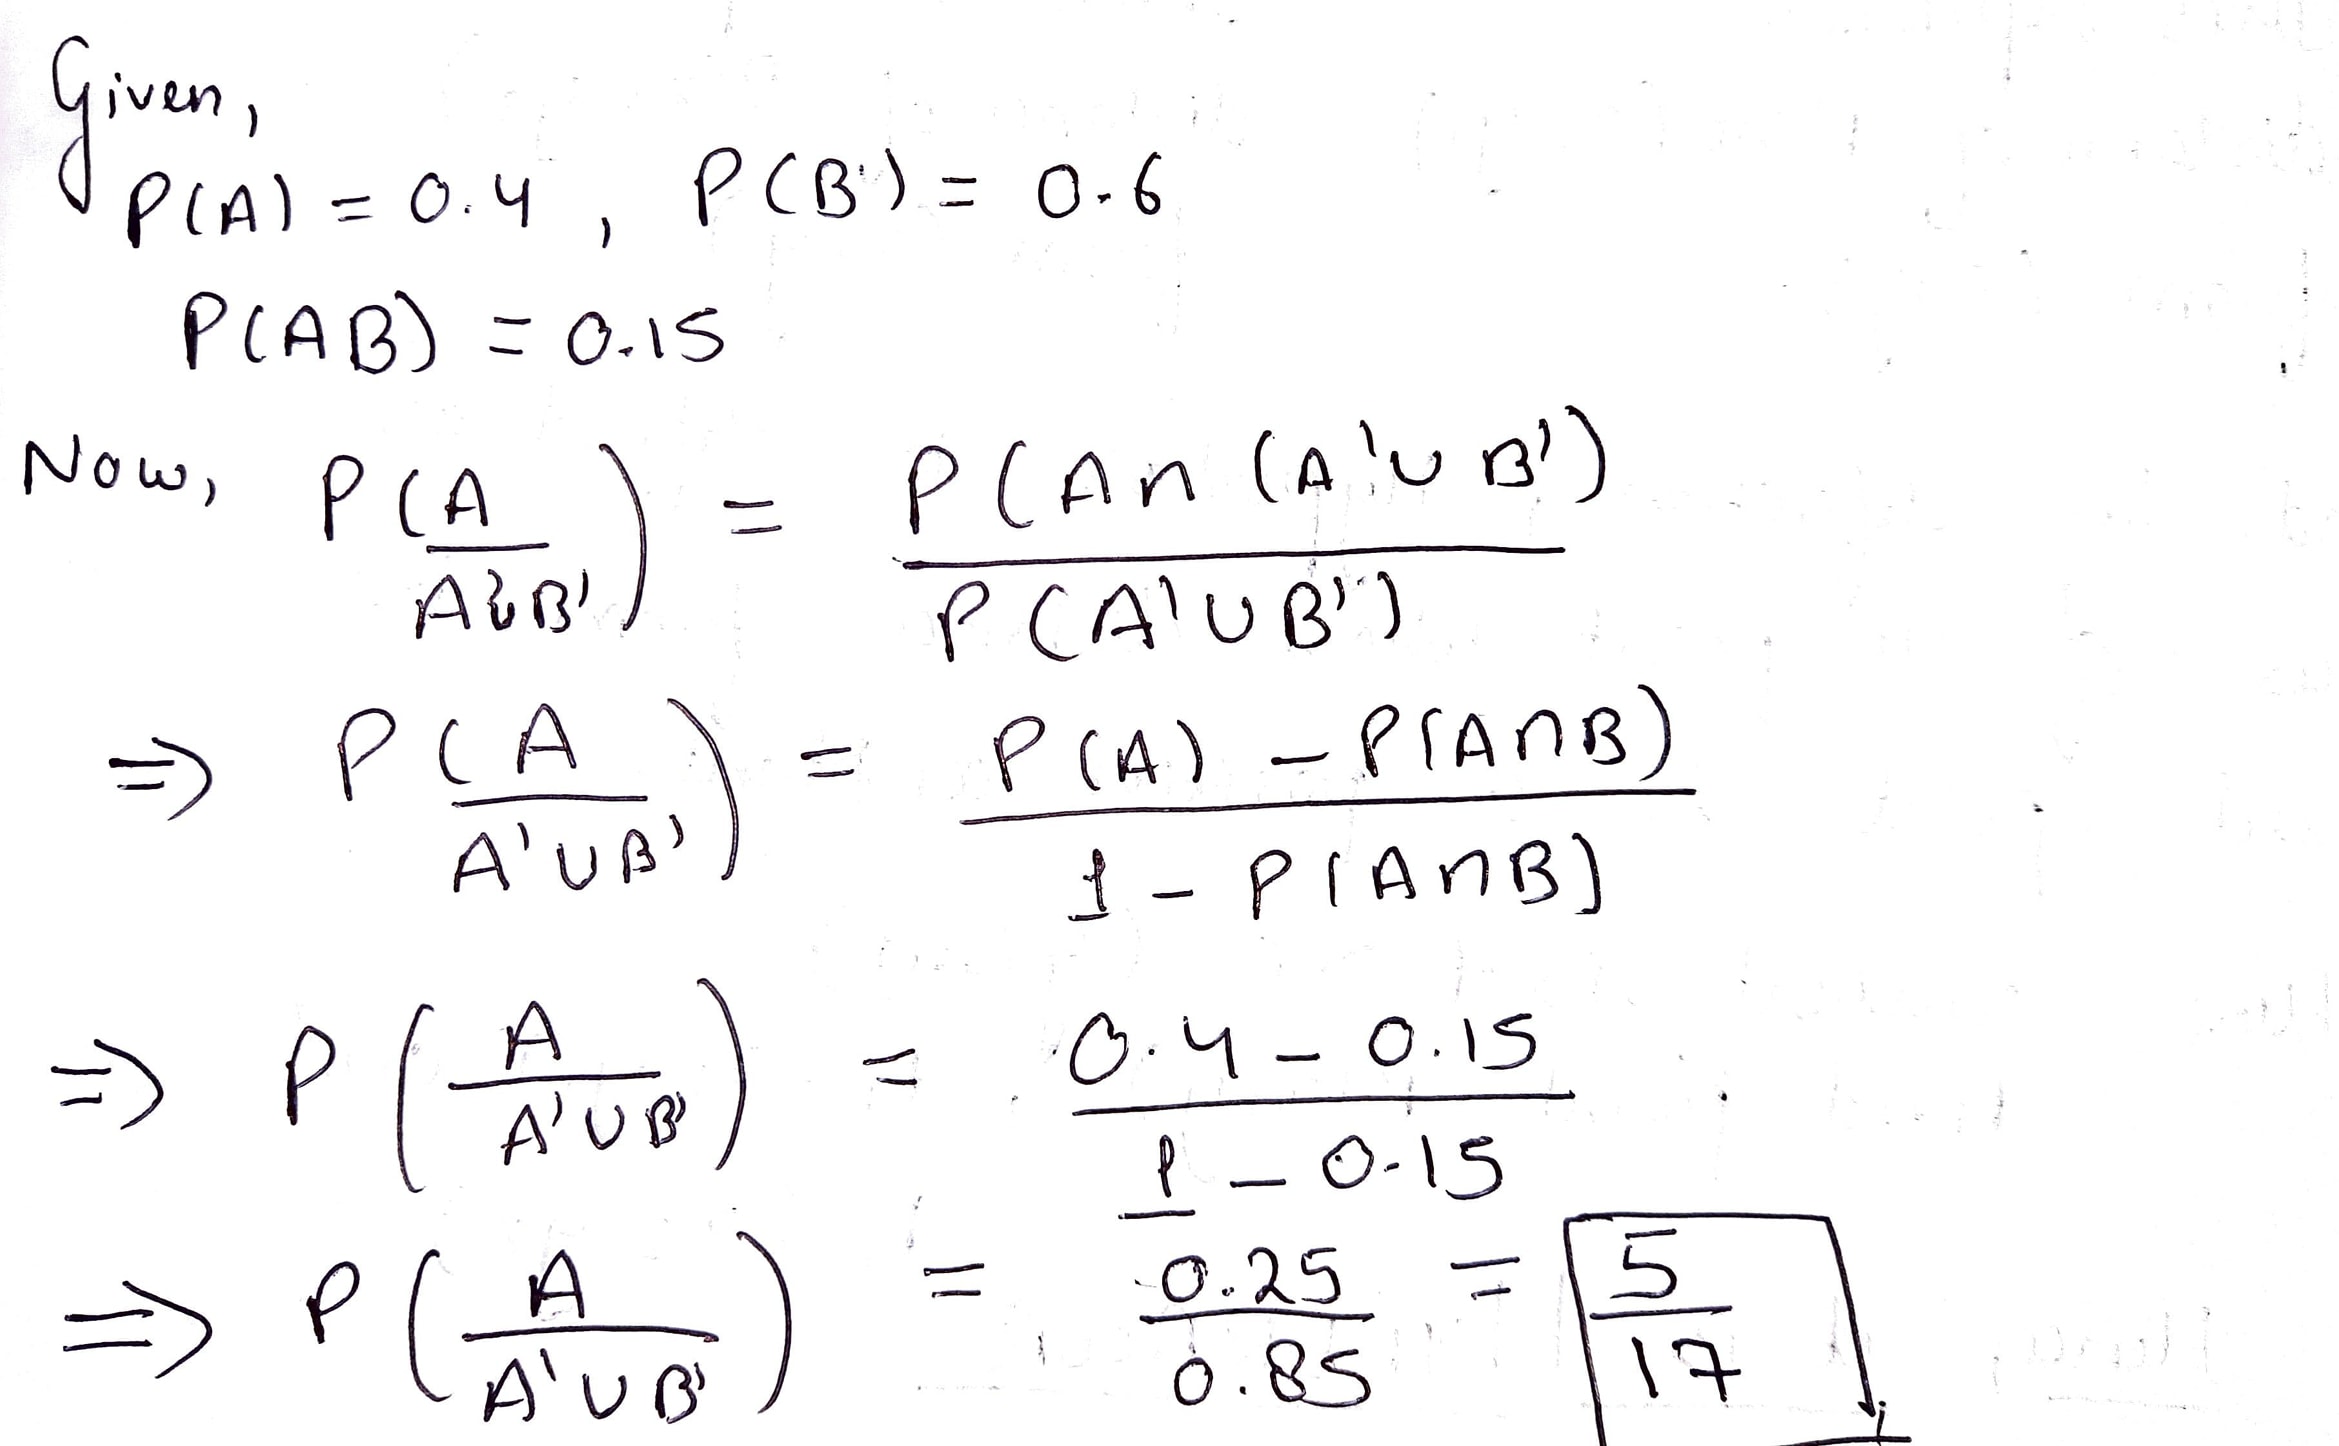 Given,
P(A) = 0.4 , P(B') = 0.6
P(AB) = 0.15
Now, P(A / A'∪B') = P(A∩(A'∪B') / P(A'∪B')
⇒ P(A / A'∪B') = P(A) - P(A∩B) / 1 - P(A∩B)
⇒ P(A / A'∪B') = 0.4 - 0.15 / 1 - 0.15
⇒ P(A / A'∪B') = 0.25 / 0.85 = 5 / 17